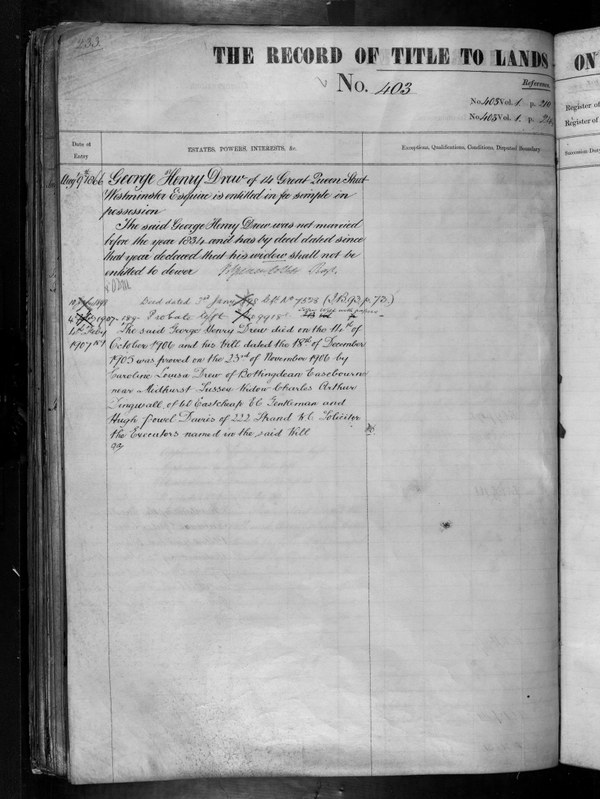 233
THE RECORD OF TITLE TO LANDS
ON
No. 403
Reference
No. 405 Vol. 1. p. 210
No. 405 Vol. 1. p.
Register of
Register of
Date of Entry
ESTATES, POWERS, INTERESTS, &c.
Exceptions, Qualifications, Conditions, Disputed Boundary
Succession Duty
1866 George Henry Drew of 14 Great Queen Street
Westminster Esquire is entitled in fee simple in
possession
The said George Henry Drew was not married
before the year 1834 and has by deed dated since
that year declared that his widow shall not be
entitled to dower
Deed dated 3rd Jany
1907 Probate
4th Feby The said George Henry Drew died on the 14th of
1907 October 1906 and his Will dated the 18th of December
1905 was proved on the 23rd of November 1906 by
Caroline Louisa Drew of Easebourne
near Midhurst Sussex Widow Charles Arthur
Dingwall of 66 Eastcheap EC Gentleman and
Hugh Powel Davies of 222 Strand WC Solicitor
the Executors named in the said Will